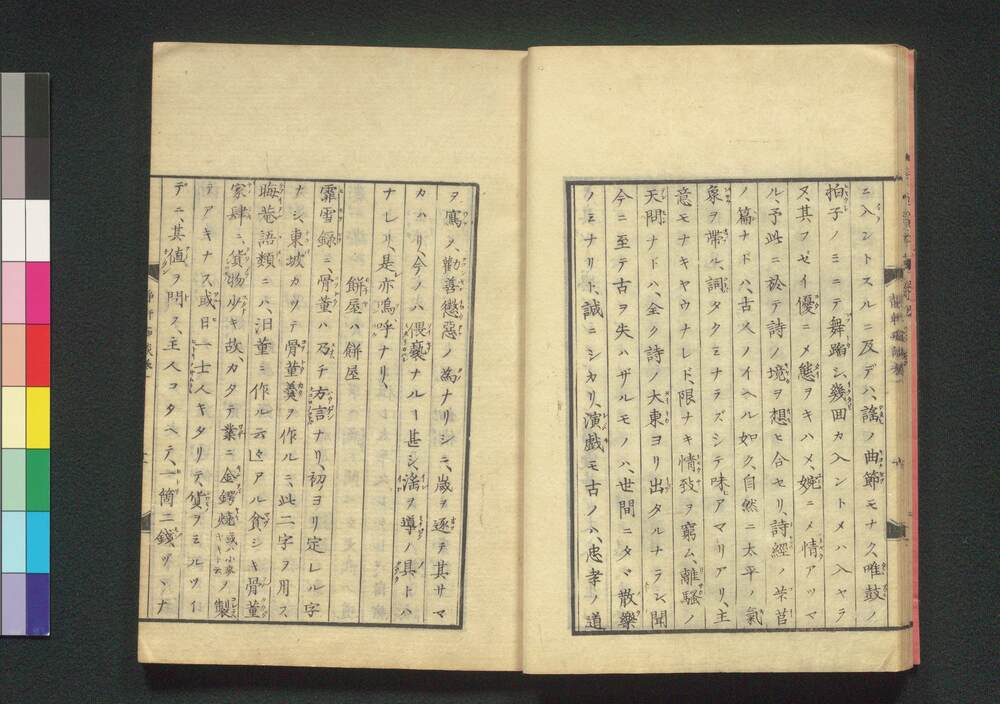 ニ入ントスルニ反デハ、謠ノ曲節モナク、唯鼓ノ
拍子ノミニテ舞蹈シ、幾回カ入ントメハ入ヤラ
ヌ、其フゼイ優ニメ態ヲキハメ、婉ニメ情アツマ
ル、予此ニ於テ詩ノ境ヲ想ヒ合セリ、詩經ノ芣苢
ノ篇ナドハ、古人ノイヘル如ク、自然ニ太平ノ氣
象ヲ帶ル、詞タクミナラズシテ味アマリアリ、主
意モナキヤウナレド、限ナキ情致ヲ窮ム、離騷ノ
天問ナドハ、全ク詩ノ大東ヨリ出タルナラン、聞
今ニ至テ古ヲ失ハザルモノハ、世間ニタヾ散樂
ノミナリト、誠ニシカリ、演戲モ古ノハ、忠孝ノ道
ヲ寫シ、勸善懲惡ノ爲ナリシニ、歲ヲ逐テ其サマ
カハリ、今ノハ猥褻ナルヿ甚シ、滛ヲ導ノ具トハ
ナレリ、是亦嗚呼ナリ、
餅屋ハ餅屋
霏雪錄ニ、骨董ハ乃チ方言ナリ、初ヨリ定レル字
ナシ、東坡カツテ骨董羹ヲ作ルニ、此二字ヲ用ス
晦菴語類ニハ、汨董ニ作ル云々アル貪シキ骨董
家肆ニ、貨物少キ故、カタテ業ニ金鍔燒ノ製
ヲアキナス、或日一士人キタリテ、貨ヲミルツイ
デニ、其値ヲ問ス、主人コタヘテ、一箇二錢ヅヽナ